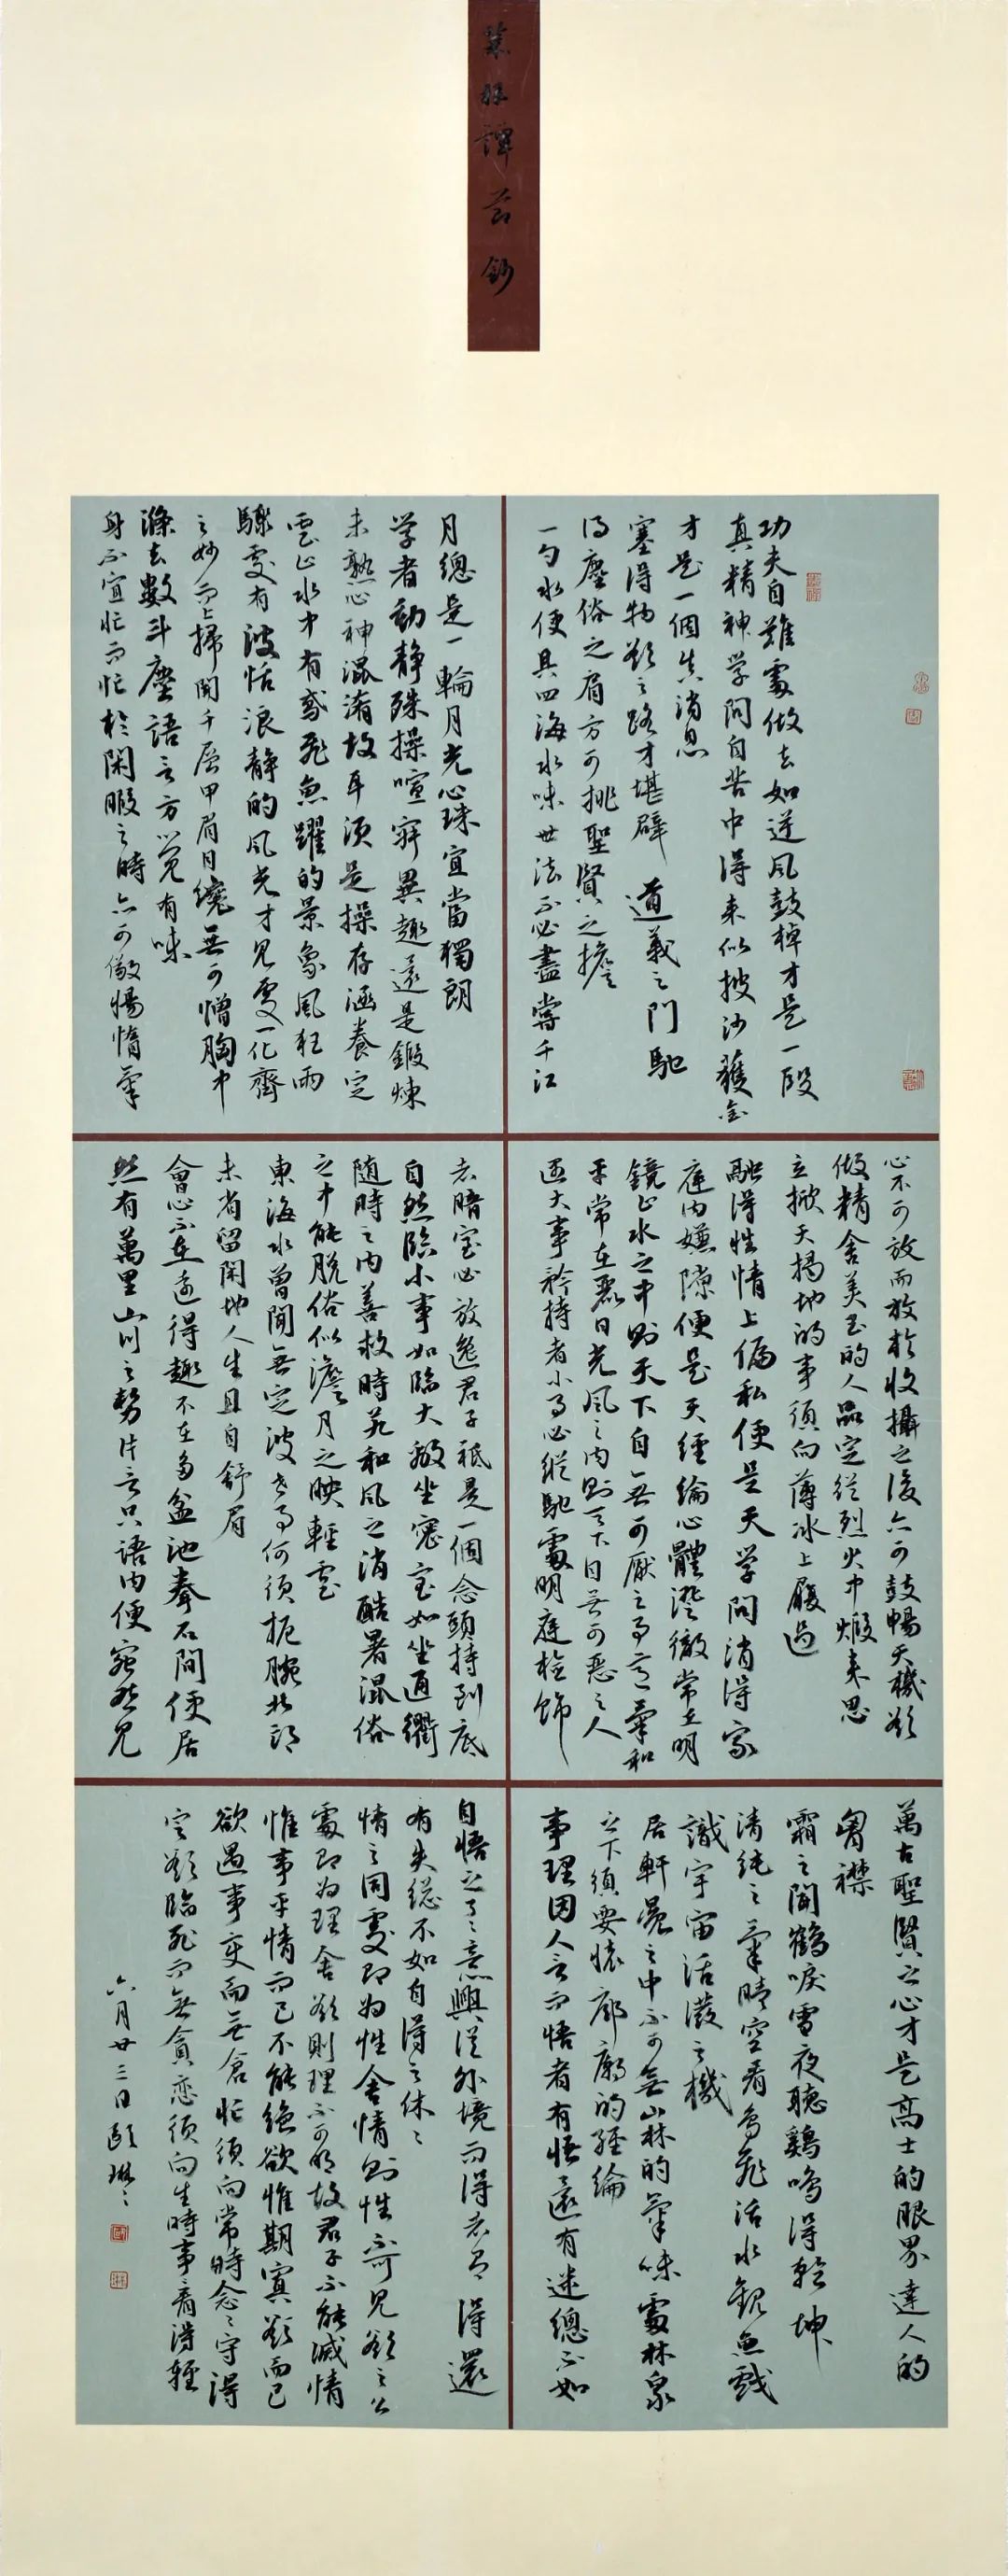 菜根譚节鈔
功夫自難處做去如逆風鼓棹才是一段
真精神学問自苦中得来似披沙獲金
才是一個真消息
塞得物欲之路才堪辟道義之門馳
得塵俗之肩方可挑聖賢之擔
一勺水便具四海水味世法不必盡嘗千江
月總是一輪月光心珠宜當獨朗
学者動静殊操喧寂異趣還是鍛煉
未熟心神混淆故耳須是操存涵養定
雲止水中有鳶飛魚躍的景象風狂雨
驟處有波恬浪静的風光才見處一化齊
之妙面上掃開千層甲眉目纔無可憎胸中
滌去數斗塵語言方覺有味
身不宜忙而忙於閑暇之時亦可儆惕惰氣
心不可放而放於收攝之後亦可鼓暢天機欲
做精金美玉的人品定從烈火中煅来思
立掀天揭地的事須向薄冰上履過
融得性情上偏私便是天学問消得家
庭内嫌隙便是天經綸心體澄徹常在明
鏡止水之中則天下自無可厭之事意氣和
平常在麗日光風之内則天下自無可惡之人
遇大事矜持者小事必縱馳處明庭檢飾
者暗室必放逸君子祗是一個念頭持到底
自然臨小事如臨大敵坐密室如坐通衢
随時之内善救時若和風之消酷暑混俗
之中能脱俗似澹月之映輕雲
東海水曾聞無定波世事何須扼腕北邙
未省留閑地人生且自舒眉
會心不在遠得趣不在多盆池拳石間便居
然有萬里山川之勢片言只語内便宛然見
萬古聖賢之心才是高士的眼界達人的
胷襟
霜天聞鶴唳雪夜聽鷄鳴得乾坤
清純之氣晴空看鳥飛活水觀魚戲
識宇宙活潑之機
居軒冕之中不可無山林的氣味處林泉
之下須要懷廊廟的經綸
事理因人言而悟者有悟還有迷總不如
自悟之了々意興從外境而得者有得還
有失總不如自得之休々
情之同處即为性舍情則性不可見欲之公
處即为理舍欲則理不可明故君子不能滅情
惟事平情而已不能絶欲惟期寡欲而已
欲遇事變而無倉忙須向常時念々守得
定欲臨死而無貪恋須向生時事看得輕
六月廿三日頤琳